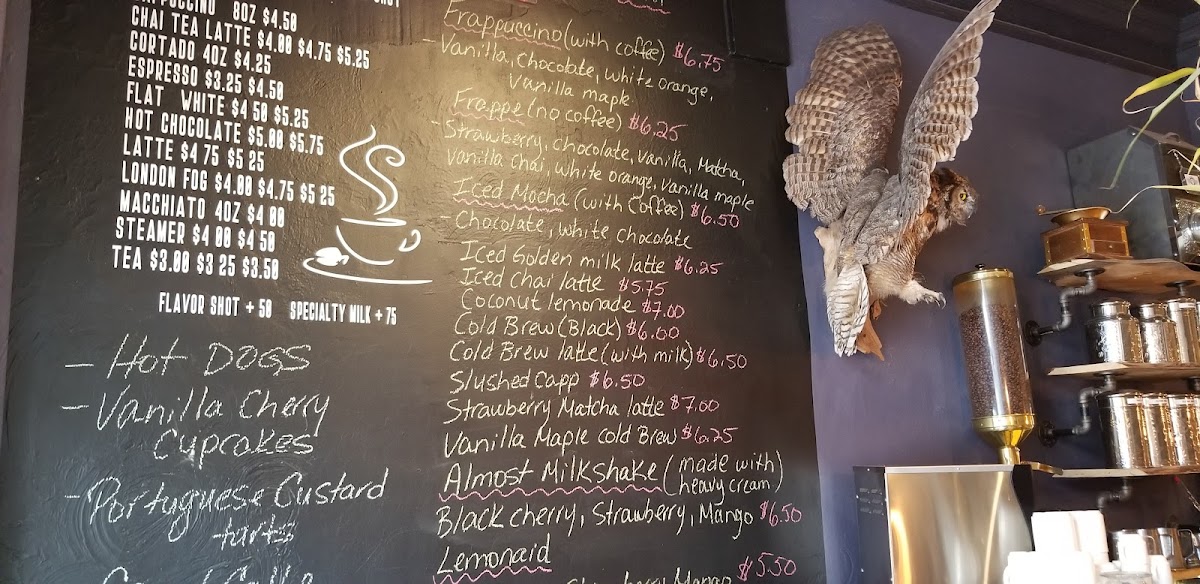 8OZ $4.50
CHAI TEA LATTE $4.00 $4.75 $5.25
CORTADO 4OZ $4.25
ESPRESSO $3.25 $4.50
FLAT WHITE $4 50 $5.25
HOT CHOCOLATE $5.00 $5.75
LATTE $4 75 $5 25
LONDON FOG $4.00 $4.75 $5 25
MACCHIATO 4OZ $4 00
STEAMER $4 00 $4 50
TEA $3.00 $3 25 $3.50
FLAVOR SHOT + 50 SPECIALTY MILK + 75
- Hot DOGS
- Vanilla Cherry
Cupcakes
- Portuguese Custard
tarts
Frappuccino (with coffee) $6.75
- Vanilla, chocolate, white orange,
vanilla maple.
Frappe (no coffee) $6.25
- Strawberry, chocolate, vanilla, Matcha,
vanilla chai, white orange, vanilla maple
Iced Mocha (with Coffee) $6.50
- Chocolate, white chocolate
Iced Golden milk latte $6.25
Iced Chai latte $5.75
Coconut lemonade $7.00
Cold Brew (Black) $6.00
Cold Brew latte (with milk) $6.50
Slushed Capp $6.50
Strawberry Matcha latte $7.00
Vanilla Maple cold Brew $6.25
Almost Milkshake (made with
heavy cream)
Black cherry, Strawberry, Mango $6.50
Lemonaid
Mango $5.50